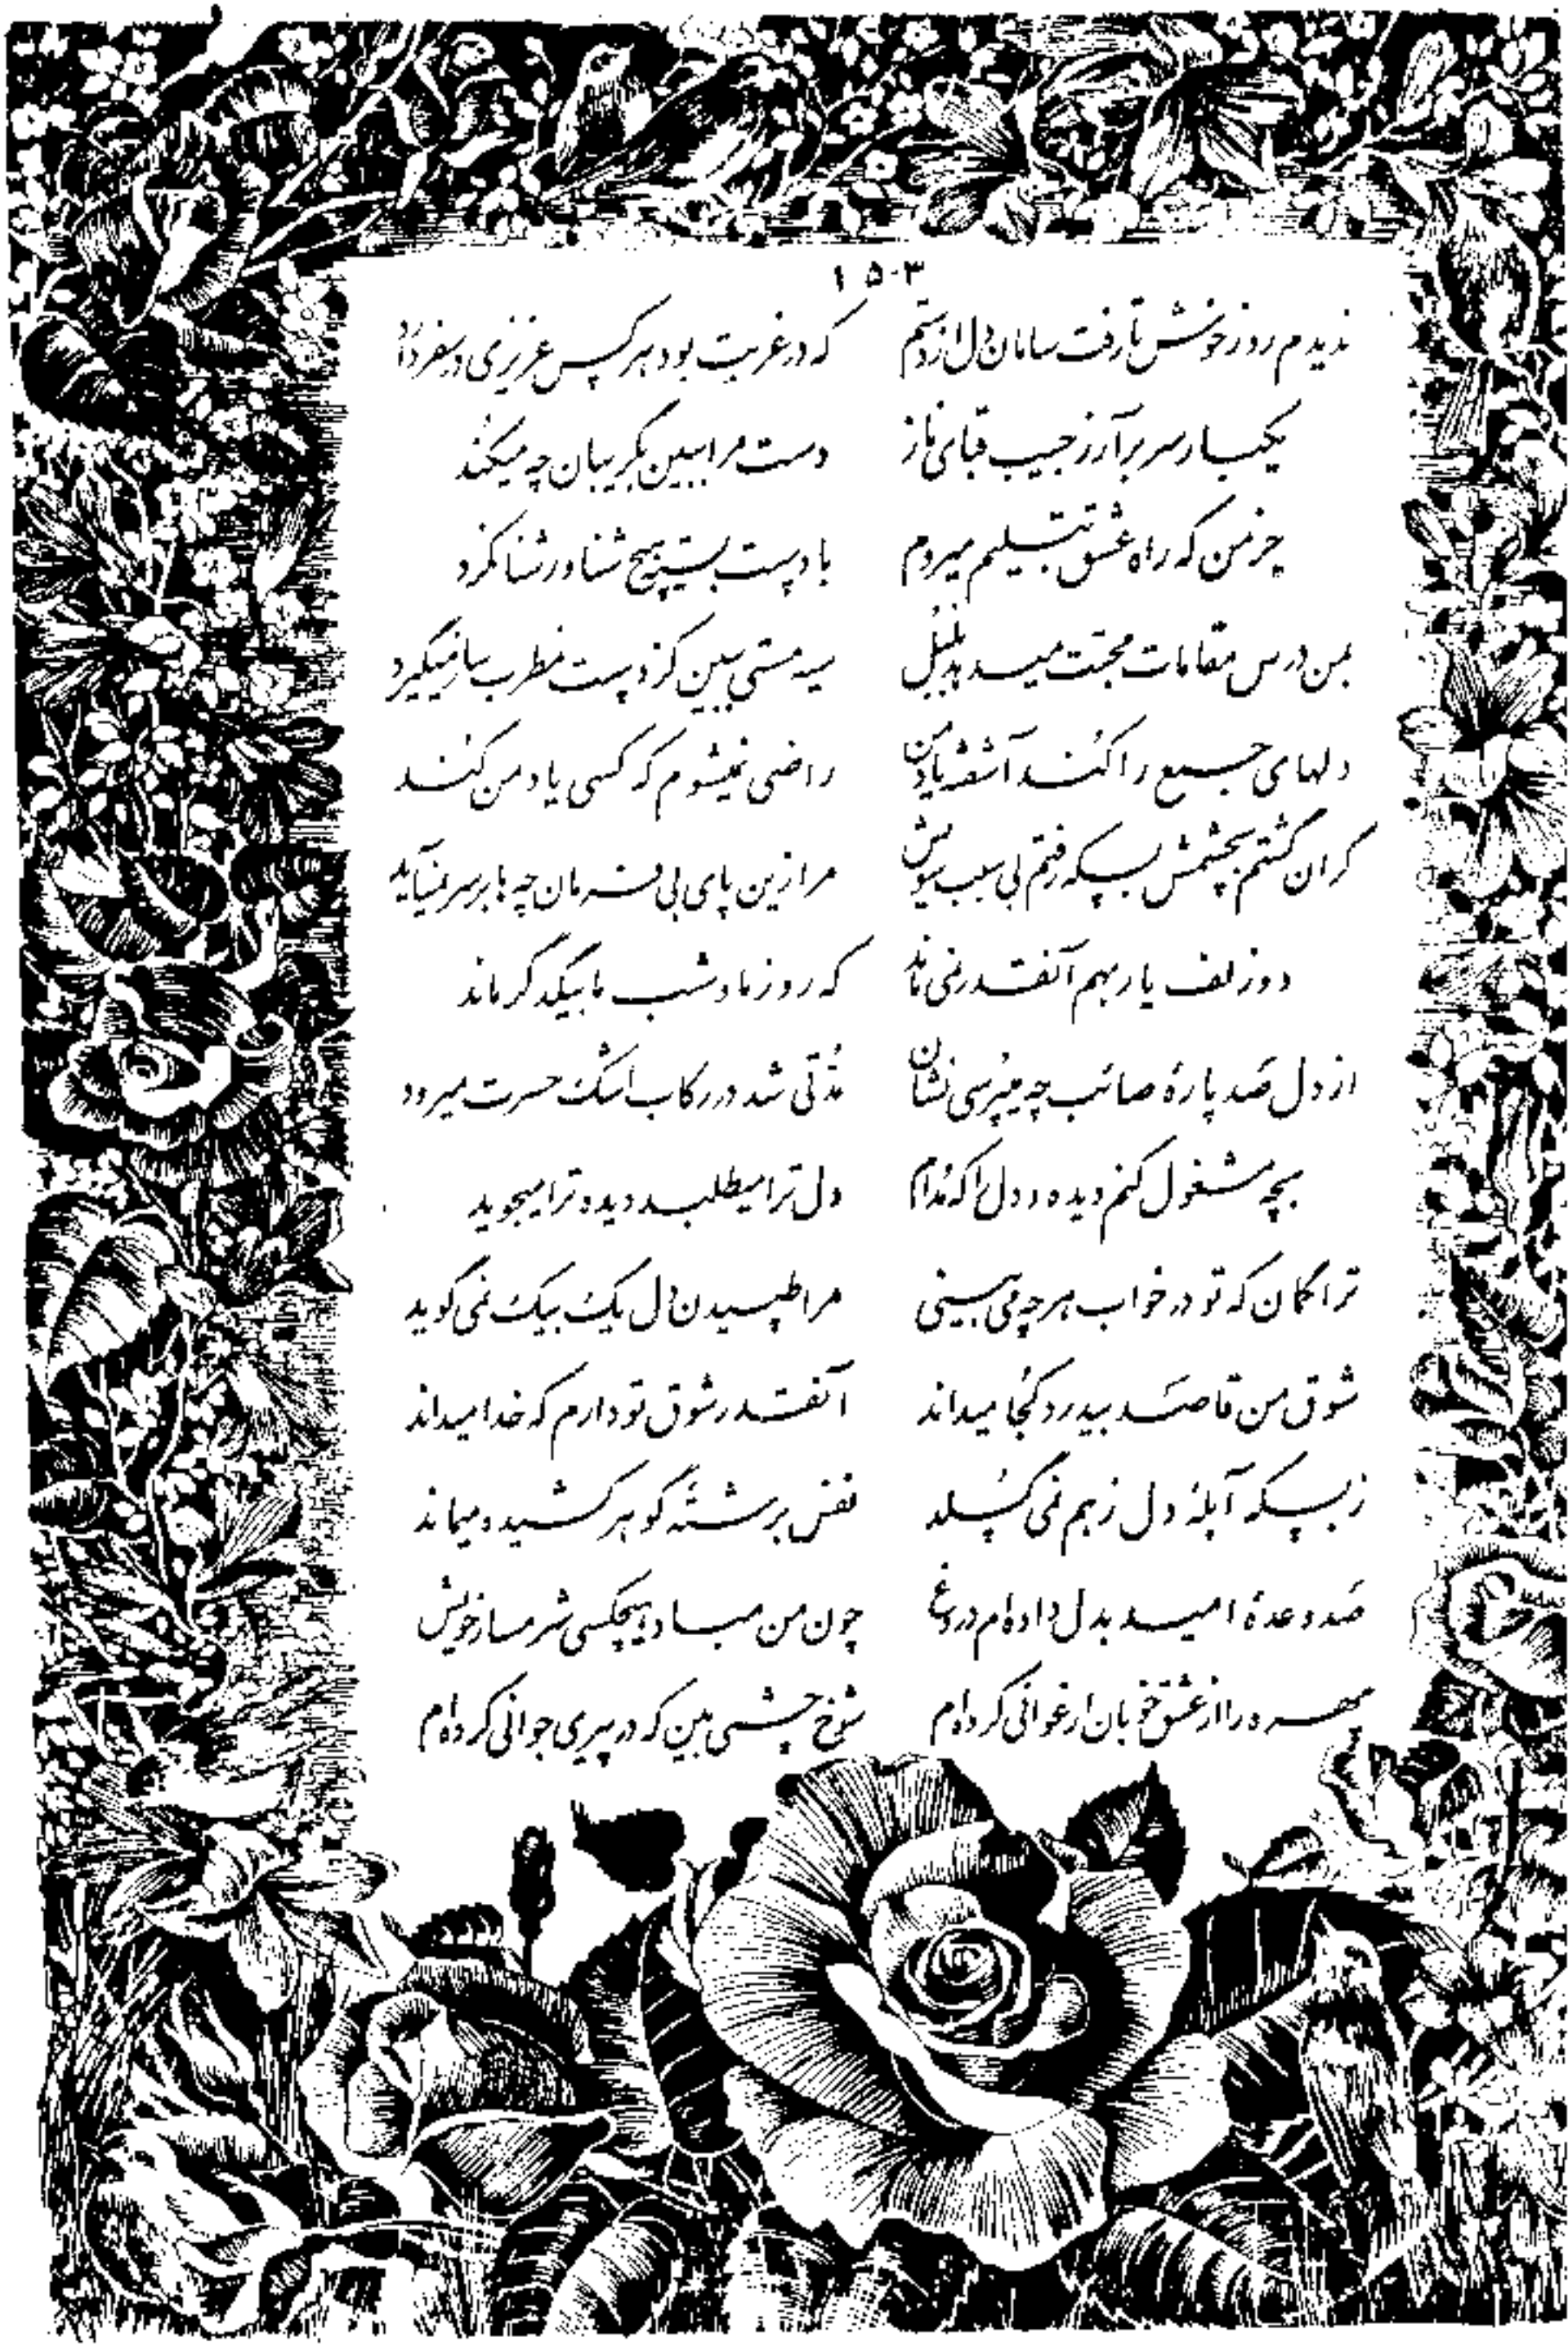 ۱۵۰۳
ندیدم روز خوش تا رفت سامان دل از دستم که در غربت بود هر کس عزیزی در سفر دارد
یکبار سر برآر ز جیب قبای ناز دست مرا ببین بگریبان چه میکند
جز من که راه عشق بتسلیم میروم با دست بسته هیچ شناور شنا نکرد
بمن درس مقامات محبت میدهد بلبل سیه مستی ببین کز دست مطرب ساز میگیرد
دلهای جمع را کند آشفته یاد من راضی نمیشوم که کسی یاد من کند
گران گشتم بچشمش بسکه رفتم بی سبب سویش مرا زین پای بی فرمان چه ها بر سر نمیآید
دو زلف یار بهم آنقدر نمی ماند که روز ما و شب ما بیکدگر ماند
از دل صد پارهٔ صائب چه میپرسی نشان مدتی شد در رکاب اشک حسرت میرود
بچه مشغول کنم دیده و دل را که مدام دل ترا میطلبد دیده ترا میجوید
ترا گمان که تو در خواب هر چه می بینی مرا طپیدن دل یک بیک نمی گوید
شوق من قاصد بیدرد کجا میداند آنقدر شوق تو دارم که خدا میداند
ز بسکه آبلهٔ دل ز هم نمی گسلد نفس برشتهٔ گوهر کشیده میماند
صد وعدهٔ امید بدل داده‌ام دروغ چون من مباد هیچکسی شرمسار خویش
چهره را از عشق خوبان ارغوانی کرده‌ام شوخ چشمی بین که در پیری جوانی کرده‌ام